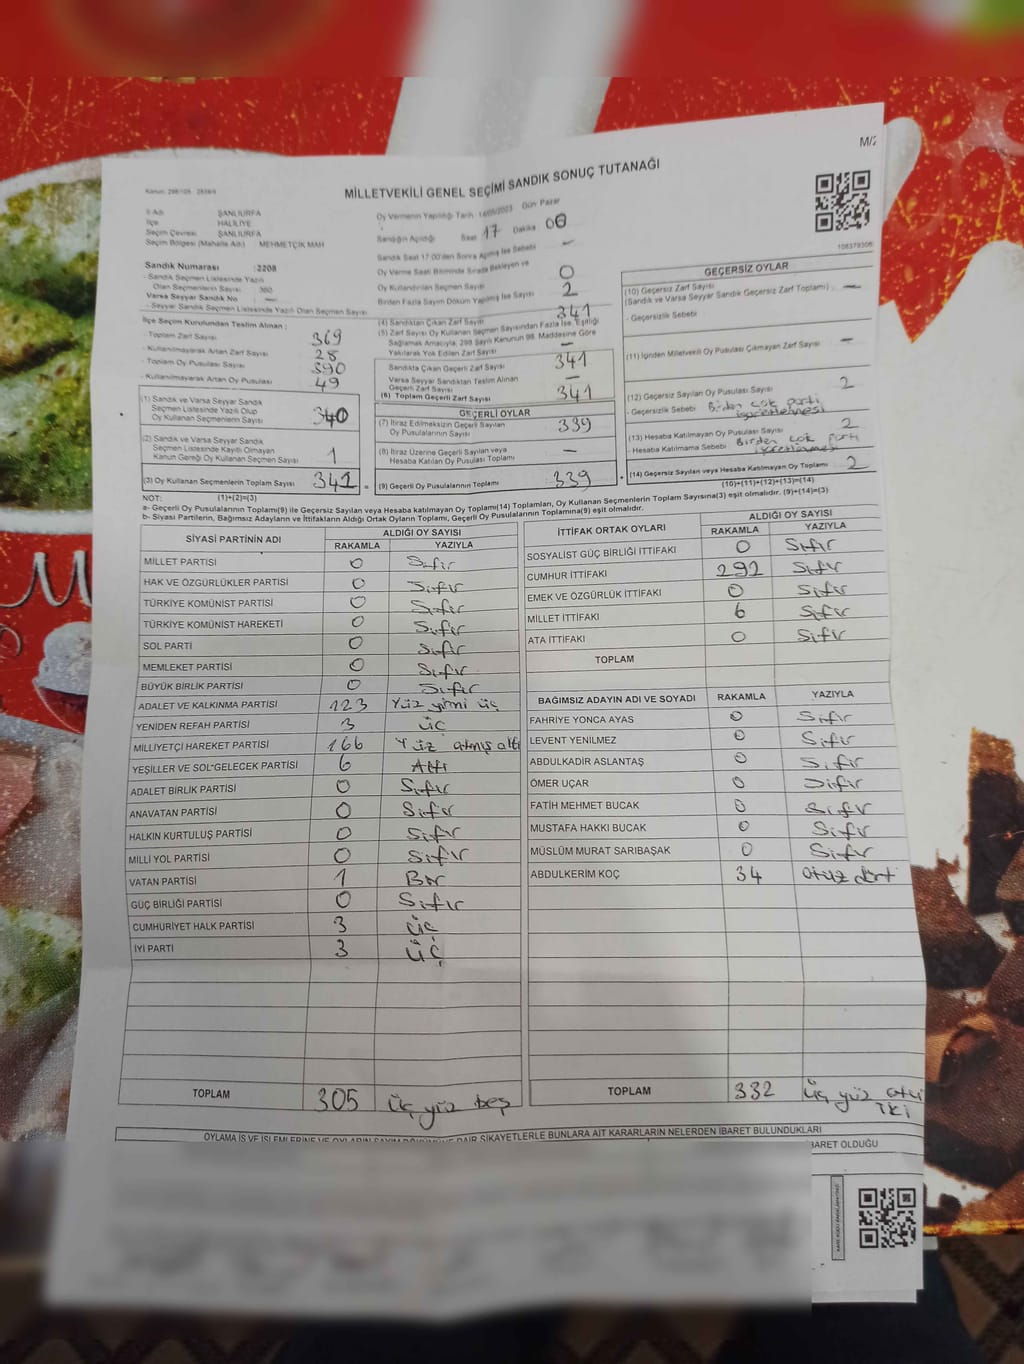 M/2
MİLLETVEKİLİ GENEL SEÇİMİ SANDIK SONUÇ TUTANAĞI
İl Adı ŞANLIURFA
İlçe HALİLİYE
Seçim Çevresi ŞANLIURFA
Seçim Bölgesi (Mahalle Adı) MEHMETÇİK MAH
Sandık Numarası :2208
- Sandık Seçmen Listesinde Yazılı
Olan Seçmenlerin Sayısı 360
Varsa Seyyar Sandık No —
- Seyyar Sandık Seçmen Listesinde Yazılı Olan Seçmen Sayısı
Oy Vermenin Yapıldığı Tarih 14/05/2023 Gün Pazar
Sandığın Açıldığı Saat 17 Dakika 00
Sandık Saat 17:00'den Sonra Açılmış İse Sebebi —
Oy Verme Saati Bitiminde Sırada Bekleyen ve
Oy Kullandırılan Seçmen Sayısı 0
Birden Fazla Sayım Döküm Yapılmış İse Sayısı 2
İlçe Seçim Kurulundan Teslim Alınan :
- Toplam Zarf Sayısı 369
- Kullanılmayarak Artan Zarf Sayısı 28
- Toplam Oy Pusulası Sayısı 390
- Kullanılmayarak Artan Oy Pusulası 49
(1) Sandık ve Varsa Seyyar Sandık
Seçmen Listesinde Yazılı Olup
Oy Kullanan Seçmenlerin Sayısı 340
(2) Sandık ve Varsa Seyyar Sandık
Seçmen Listesinde Kayıtlı Olmayan
Kanun Gereği Oy Kullanan Seçmen Sayısı 1
(3) Oy Kullanan Seçmenlerin Toplam Sayısı 341
(4) Sandıktan Çıkan Zarf Sayısı 341
(5) Zarf Sayısı Oy Kullanan Seçmen Sayısından Fazla İse, Eşitliği
Sağlamak Amacıyla, 298 Sayılı Kanunun 98. Maddesine Göre
Yakılarak Yok Edilen Zarf Sayısı —
Sandıkta Çıkan Geçerli Zarf Sayısı 341
Varsa Seyyar Sandıktan Teslim Alınan
Geçerli Zarf Sayısı —
(6) Toplam Geçerli Zarf Sayısı 341
GEÇERLİ OYLAR
(7) İtiraz Edilmeksizin Geçerli Sayılan
Oy Pusulalarının Sayısı 339
(8) İtiraz Üzerine Geçerli Sayılan veya
Hesaba Katılan Oy Pusulası Toplamı —
(9) Geçerli Oy Pusulalarının Toplamı 339
GEÇERSİZ OYLAR
(10) Geçersiz Zarf Sayısı
(Sandık ve Varsa Seyyar Sandık Geçersiz Zarf Toplamı) —
- Geçersizlik Sebebi
(11) İçinden Milletvekili Oy Pusulası Çıkmayan Zarf Sayısı —
(12) Geçersiz Sayılan Oy Pusulası Sayısı 2
- Geçersizlik Sebebi Birden çok parti
(13) Hesaba Katılmayan Oy Pusulası Sayısı 2
- Hesaba Katılmama Sebebi Birden çok parti
(14) Geçersiz Sayılan veya Hesaba Katılmayan Oy Toplamı 2
(10)+(11)+(12)+(13)=(14)
NOT: (1)+(2)=(3)
a- Geçerli Oy Pusulaları Toplamı(9) ile Geçersiz Sayılan veya Hesaba katılmayan Oy Toplamı(14) Toplamları, Oy Kullanan Seçmenlerin Toplam Sayısına(3) eşit olmalıdır. (9)+(14)=(3)
b- Siyasi Partilerin, Bağımsız Adayların ve İttifakların Aldığı Ortak Oyların Toplamı, Geçerli Oy Pusulalarının Toplamına(9) eşit olmalıdır.
SİYASİ PARTİNİN ADI ALDIĞI OY SAYISI
RAKAMLA YAZIYLA
MİLLET PARTİSİ 0 Sıfır
HAK VE ÖZGÜRLÜKLER PARTİSİ 0 Sıfır
TÜRKİYE KOMÜNİST PARTİSİ 0 Sıfır
TÜRKİYE KOMÜNİST HAREKETİ 0 Sıfır
SOL PARTİ 0 Sıfır
MEMLEKET PARTİSİ 0 Sıfır
BÜYÜK BİRLİK PARTİSİ 0 Sıfır
ADALET VE KALKINMA PARTİSİ 123 Yüz yirmi üç
YENİDEN REFAH PARTİSİ 3 üç
MİLLİYETÇİ HAREKET PARTİSİ 166 Yüz atmış altı
YEŞİLLER VE SOL GELECEK PARTİSİ 6 Altı
ADALET BİRLİK PARTİSİ 0 Sıfır
ANAVATAN PARTİSİ 0 Sıfır
HALKIN KURTULUŞ PARTİSİ 0 Sıfır
MİLLİ YOL PARTİSİ 0 Sıfır
VATAN PARTİSİ 1 Bir
GÜÇ BİRLİĞİ PARTİSİ 0 Sıfır
CUMHURİYET HALK PARTİSİ 3 üç
İYİ PARTİ 3 üç
TOPLAM 305 üç yüz beş
İTTİFAK ORTAK OYLARI ALDIĞI OY SAYISI
RAKAMLA YAZIYLA
SOSYALİST GÜÇ BİRLİĞİ İTTİFAKI 0 Sıfır
CUMHUR İTTİFAKI 292 Sıfır
EMEK VE ÖZGÜRLÜK İTTİFAKI 0 Sıfır
MİLLET İTTİFAKI 6 Sıfır
ATA İTTİFAKI 0 Sıfır
TOPLAM
BAĞIMSIZ ADAYIN ADI VE SOYADI RAKAMLA YAZIYLA
FAHRİYE YONCA AYAS 0 Sıfır
LEVENT YENİLMEZ 0 Sıfır
ABDULKADİR ASLANTAŞ 0 Sıfır
ÖMER UÇAR 0 Sıfır
FATİH MEHMET BUCAK 0 Sıfır
MUSTAFA HAKKI BUCAK 0 Sıfır
MÜSLÜM MURAT SARIBAŞAK 0 Sıfır
ABDULKERİM KOÇ 34 otuz dört
TOPLAM 332 üç yüz otuz iki
NELERDEN İBARET BULUNDUKLARI
BARET OLDUĞU